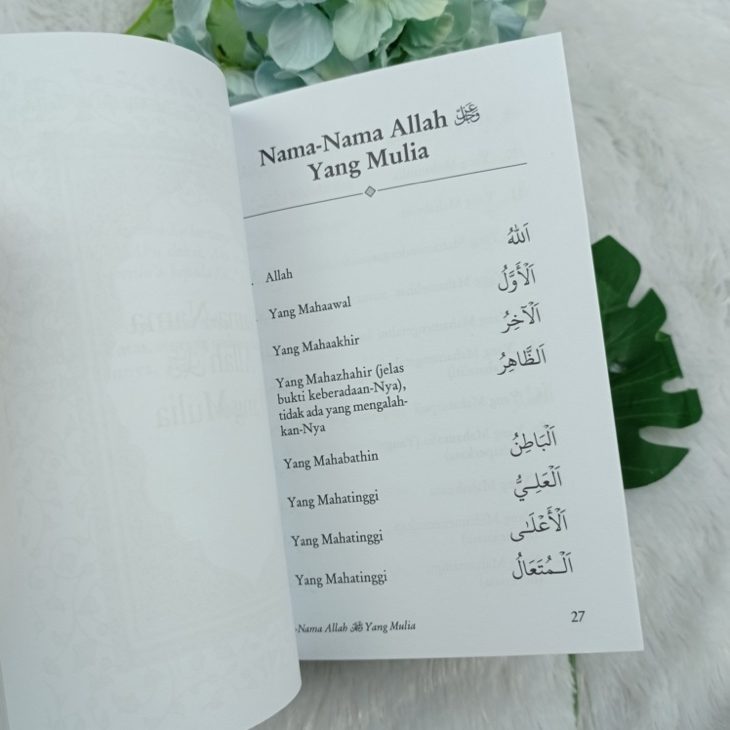 Nama-Nama Allah عَزَّوَجَلَّ
Yang Mulia
Allah اَللّٰهُ
Yang Mahaawal اَلْأَوَّلُ
Yang Mahaakhir اَلْآخِرُ
Yang Mahazhahir (jelas اَلظَّاهِرُ
bukti keberadaan-Nya),
tidak ada yang mengalah-
kan-Nya
Yang Mahabathin اَلْبَاطِنُ
Yang Mahatinggi اَلْعَلِيُّ
Yang Mahatinggi اَلْأَعْلَى
Yang Mahatinggi اَلْمُتَعَالُ
-Nama Allah ﷻ Yang Mulia 27